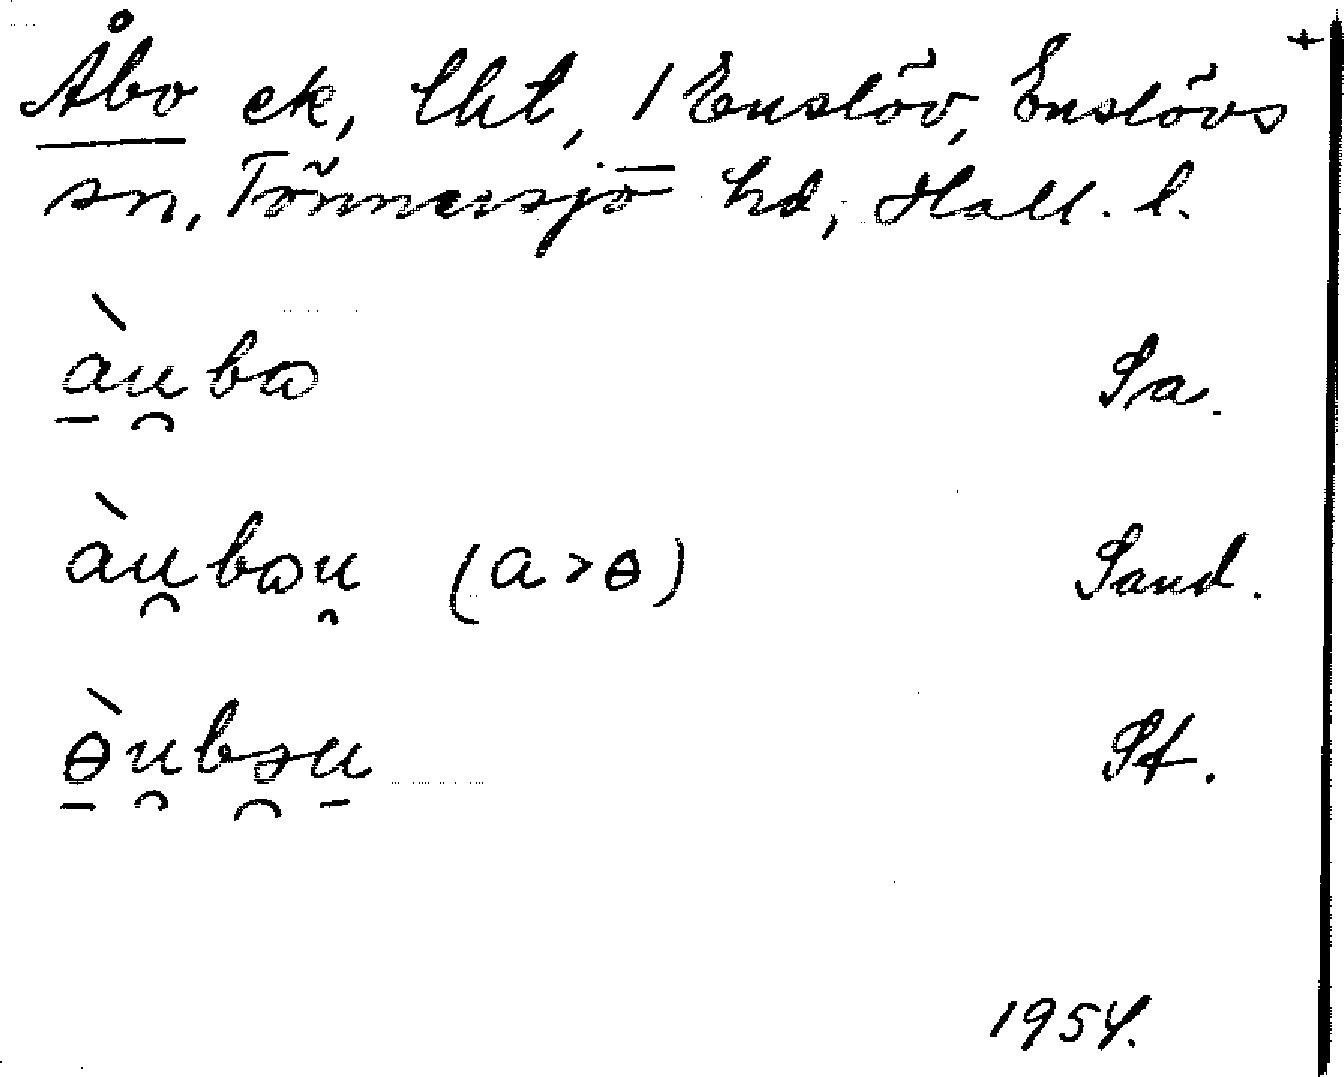 +
Åbo ek, lht, 1 Enslöv, Enslövs
sn, Tönnersjö hd, Hall. l.
àu̯bɷ Sa.
àu̯bɷu̯ (a>ɵ) Sand.
ɵ̀u̯bɘ̯u St.
1954.